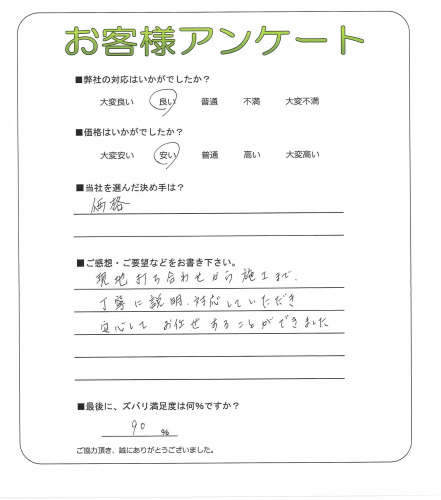 お客様アンケート
■弊社の対応はいかがでしたか？
大変良い 良い 普通 不満 大変不満
■価格はいかがでしたか？
大変安い 安い 普通 高い 大変高い
■当社を選んだ決め手は？
価格
■ご感想・ご要望などをお書き下さい。
現地打ち合わせから施工まで、
丁寧に説明、対応していただき
安心して お任せすることができました
■最後に、ズバリ満足度は何％ですか？
90 ％
ご協力頂き、誠にありがとうございました。